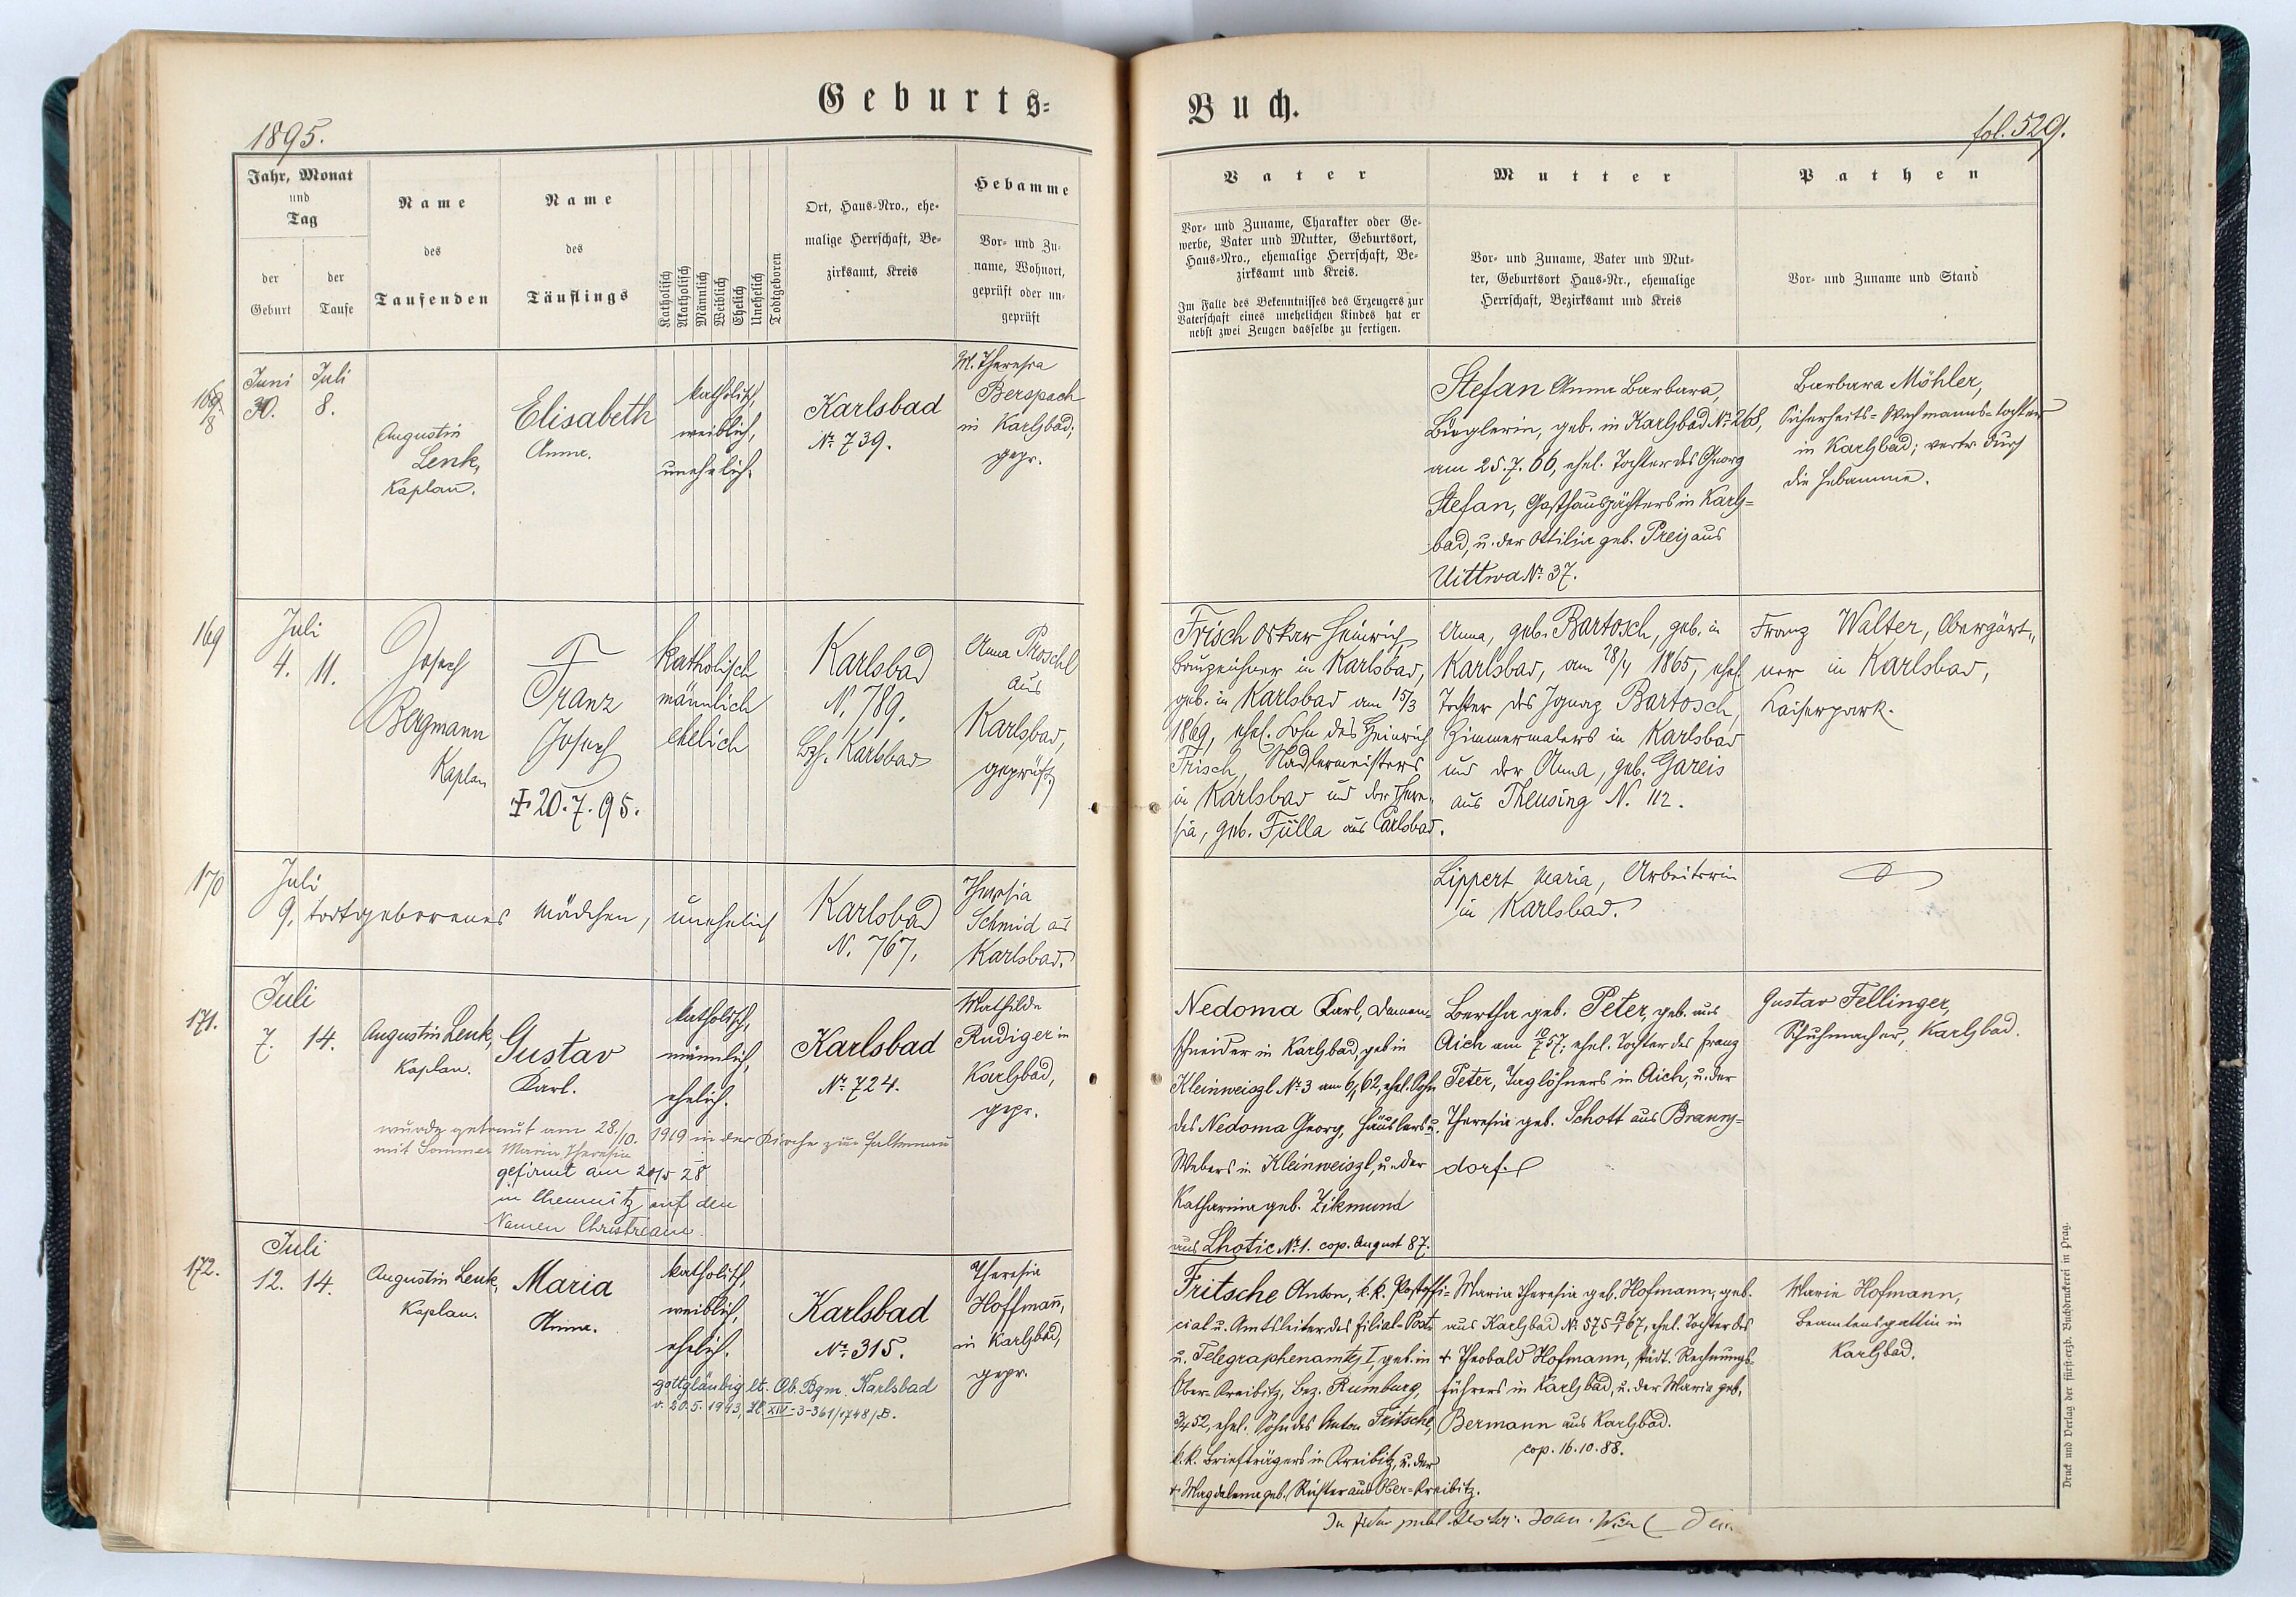 Geburts-
Buch.
1895.
fol. 529.
Jahr, Monat
und
Tag
der
Geburt
der
Taufe
Name
des
Taufenden
Name
des
Täuflings
Katholisch
Akatholisch
Männlich
Weiblich
Ehelich
Unehelich
Todtgeboren
Ort, Haus-Nro., ehe-
malige Herrschaft, Be-
zirksamt, Kreis
Hebamme
Vor- und Zu-
name, Wohnort,
geprüft oder un-
geprüft
Vater
Vor- und Zuname, Charakter oder Ge-
werbe, Vater und Mutter, Geburtsort,
Haus-Nro., ehemalige Herrschaft, Be-
zirksamt und Kreis.
Im Falle des Bekenntnisses des Erzeugers zur
Vaterschaft eines unehelichen Kindes hat er
nebst zwei Zeugen dasselbe zu fertigen.
Mutter
Vor- und Zuname, Vater und Mut-
ter, Geburtsort Haus-Nr., ehemalige
Herrschaft, Bezirksamt und Kreis
Pathen
Vor- und Zuname und Stand
Juni
30.
Juli
8.
Augustin
Lenk,
Kaplan.
Elisabeth
Anna.
katholisch,
weiblich,
unehelich.
Karlsbad
Nr. 739.
M. Theresia
Berspach
in Karlsbad;
gepr.
Stefan Anna Barbara,
Büglerin, geb. in Karlsbad Nr. 268,
am 25.7.66, ehel. Tochter des Georg
Stefan, Gasthauspächters in Karls-
bad, u. der Ottilia geb. Preis aus
Uittwa Nr. 37.
Barbara Möhler,
Sicherheits-Wachmanns-tochter
in Karlsbad; vertr. durch
die Hebamme.
169
Juli
4. 11.
Josef
Bergmann
Kaplan
Franz
Josef
20.7.95.
katholisch
männlich
ehelich
Karlsbad
N. 789.
Bzh. Karlsbad
Anna Proschl
aus
Karlsbad,
geprüft
Frisch Oskar Heinrich,
Bauzeichner in Karlsbad,
geb. in Karlsbad am 15/3
1869, ehel. Sohn des Heinrich
Frisch, Nadlermeisters
in Karlsbad und der There-
sia, geb. Fülla aus Carlsbad.
Anna, geb. Bartosch, geb. in
Karlsbad, am 1865, ehel.
Tochter des Ignaz Bartosch,
Zimmermalers in Karlsbad
und der Anna, geb. Gareis
aus Theusing N. 112.
Franz Walter, Obergärt-
ner in Karlsbad,
Kaiserpark.
170
Juli
9. todtgeborenes Mädchen, unehelich
Karlsbad
N. 767.
Theresia
Schmid aus
Karlsbad.
Lippert Maria, Arbeiterin
in Karlsbad.
171.
Juli
7. 14.
Augustin Lenk,
Kaplan.
Gustav
Karl.
katholisch,
männlich,
ehelich.
Karlsbad
Nr. 724.
Mathilde
Rudiger in
Karlsbad,
gepr.
wurde getraut am 28./10. 1919 in der Kirche zu Falkenau
mit Sommer Maria Theresia
gefirmt am 20/5 28
in Chemnitz auf den
Namen
Nedoma Karl, Damen-
schneider in Karlsbad, geb. in
Kleinweiszl Nr. 3 am 6/1 62, ehel. Sohn
des Nedoma Georg, Häuslers u.
Webers in Kleinweiszl, u. der
Katharina geb. Zikmund
aus Lhotic Nr. 1. cop. August 87.
Bertha geb. Peter, geb. aus
Aich am 57; ehel. Tochter des Franz
Peter, Taglöhners in Aich, u. der
Theresia geb. Schott aus
dorf.
Gustav Fellinger,
Schuhmacher, Karlsbad.
172.
Juli
12. 14.
Augustin Lenk,
Kaplan.
Maria
Anna.
katholisch,
weiblich,
ehelich.
Karlsbad
Nr. 315.
gottgläubig lt. Ob. Bgm. Karlsbad
v. 20.5.1943, Zl. XIV-3-361/1748/B.
Theresia
Hoffmann,
in Karlsbad,
gepr.
Fritsche Anton, k.k. Postoffi-
cial u. Amtsleiter des Filial-Post-
u. Telegraphenamts I, geb. in
Ober-Kreibitz, Bez. Rumburg,
3/4 52, ehel. Sohn des Anton Fritsche,
k.k. Briefträgers in Kreibitz, u. der
+ Magdalena geb. Richter aus Ober-Kreibitz.
Maria Theresia geb. Hofmann, geb.
aus Karlsbad Nr. 575 67, ehel. Tochter des
+ Theobald Hofmann, städt. Rechnungs-
führers in Karlsbad, u. der Maria geb.
Bermann aus Karlsbad.
cop. 16.10.88.
Marie Hofmann,
Beamtensgattin in
Karlsbad.
Druck und Verlag der fürst-erzb. Buchdruckerei in Prag.